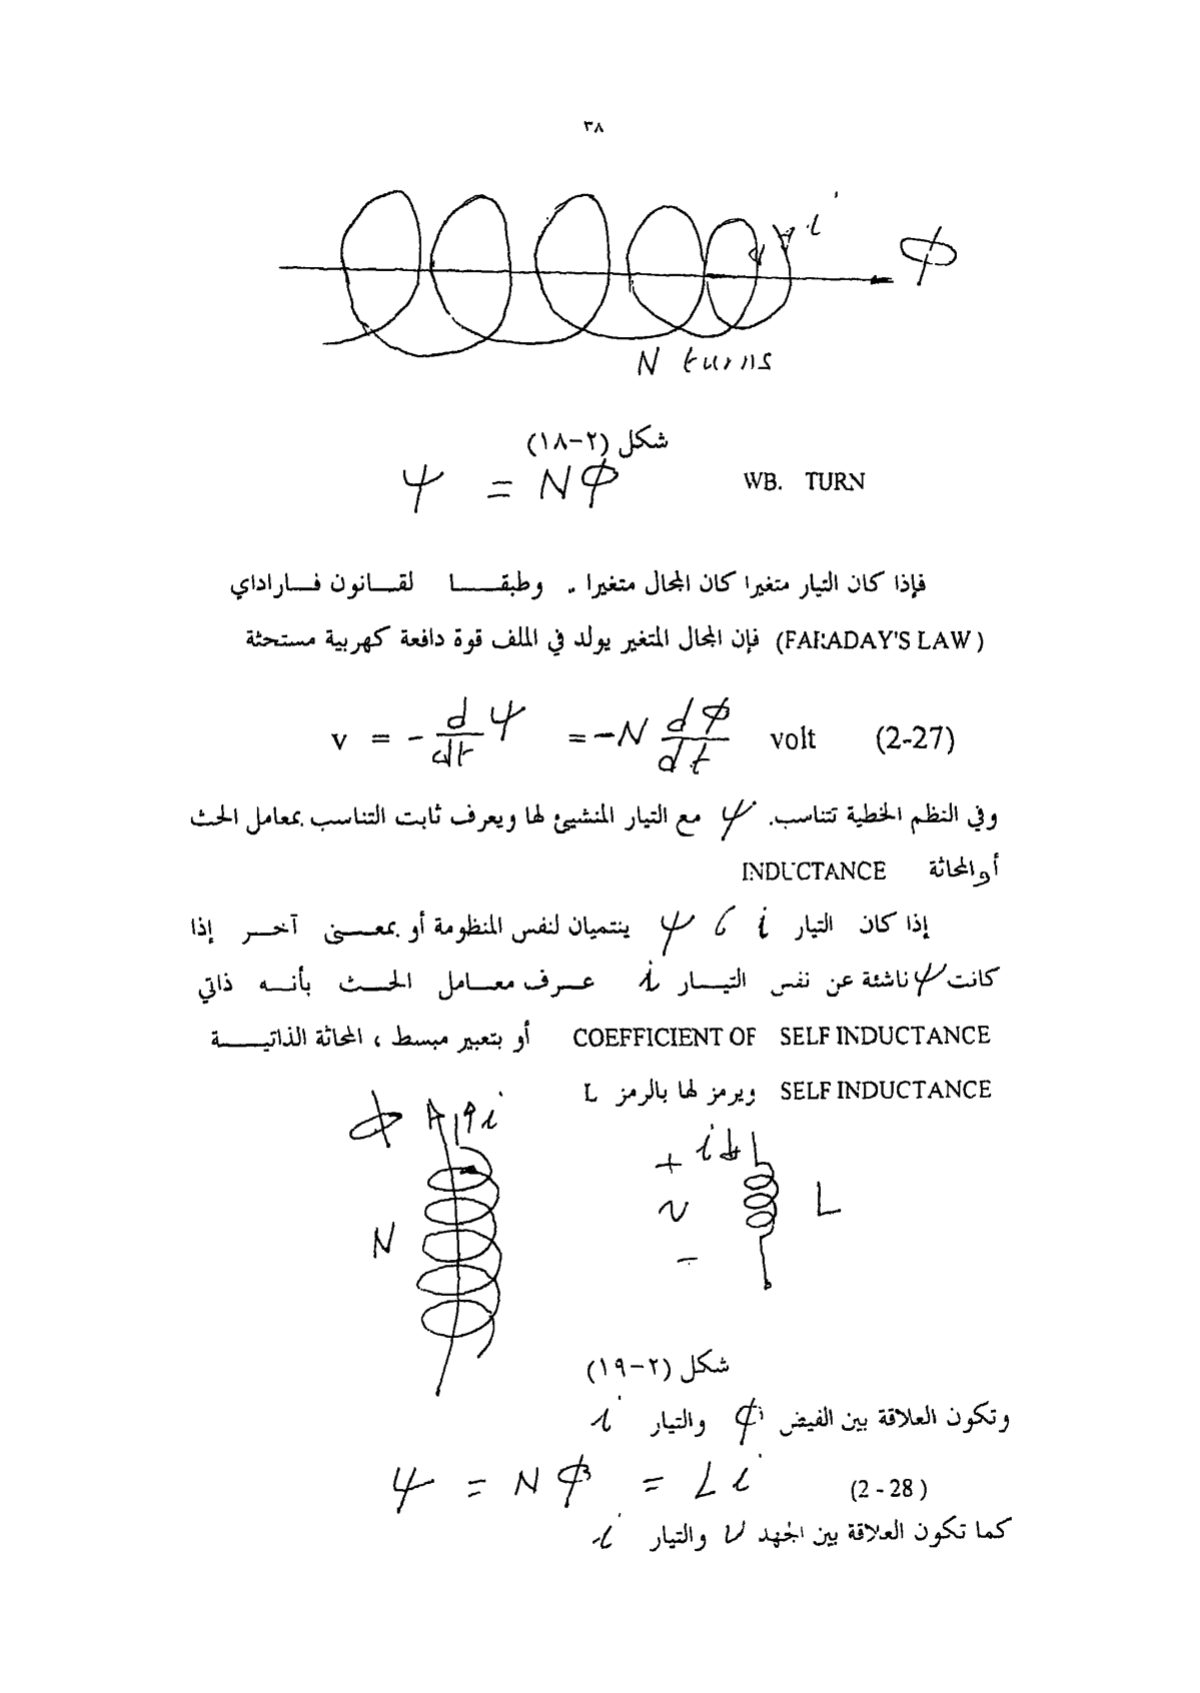 ٣٨
i
Φ
N turns
شكل (٢-١٨)
Ψ = NΦ WB. TURN
فإذا كان التيار متغيرا كان المجال متغيرا . وطبقا لقانون فاراداي
(FARADAY'S LAW) فإن المجال المتغير يولد في الملف قوة دافعة كهربية مستحثة
v = - d/dt Ψ = -N dΦ/dt volt (2-27)
وفي النظم الخطية تتناسب. Ψ مع التيار المنشيئ لها ويعرف ثابت التناسب بمعامل الحث
أو المحاثة INDUCTANCE
إذا كان التيار i ، Ψ ينتميان لنفس المنظومة أو بمعنى آخر إذا
كانت Ψ ناشئة عن نفس التيار i عرف معامل الحث بأنه ذاتي
COEFFICIENT OF SELF INDUCTANCE أو بتعبير مبسط ، المحاثة الذاتية
SELF INDUCTANCE ويرمز لها بالرمز L
Φ i
N
+ i
v L
-
شكل (٢-١٩)
وتكون العلاقة بين الفيض Φ والتيار i
Ψ = NΦ = Li (2 - 28)
كما تكون العلاقة بين الجهد v والتيار i